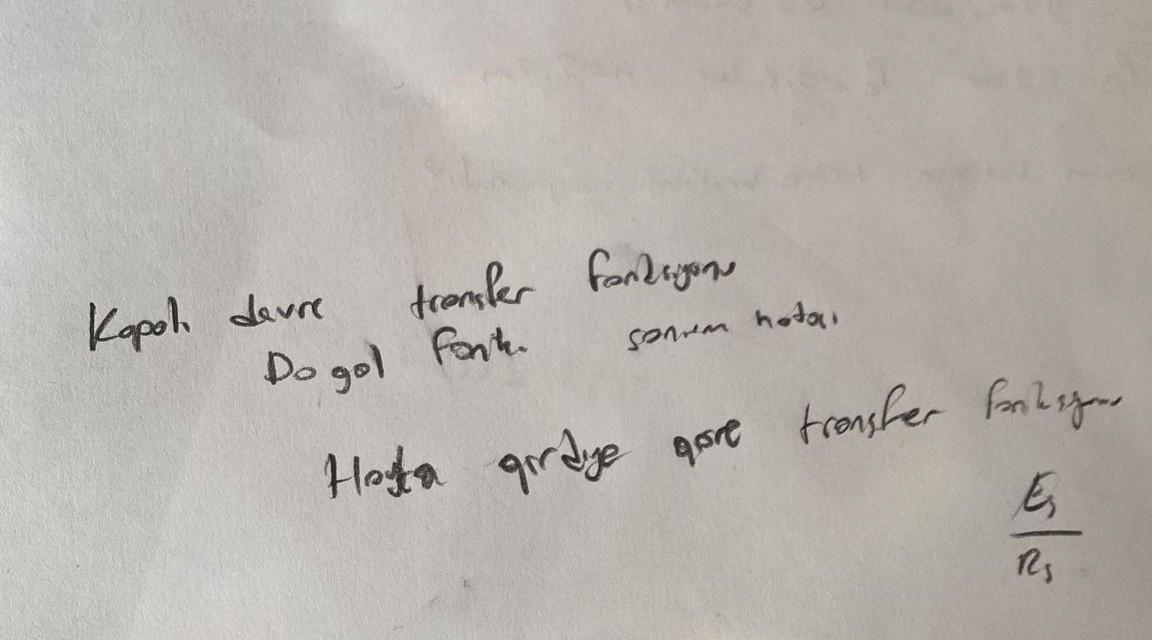 Kapalı devre transfer fonksiyonu
Doğal fonk.
Hata girdiye göre transfer fonksiyonu
Es
Rs